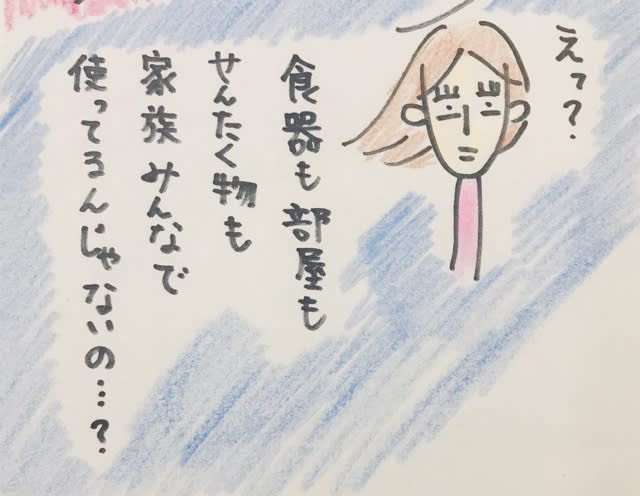 えっ？
食器も部屋も
せんたく物も
家族みんなで
使ってるんじゃないの…？